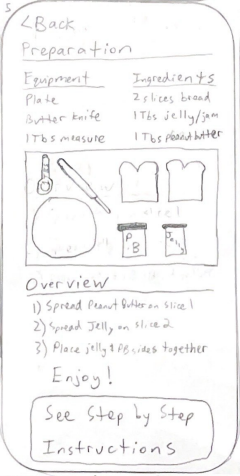 5
<Back
Preparation
Equipment Ingredients
Plate 2 slices bread
Butter knife 1 Tbs jelly/jam
1 Tbs measure 1 Tbs peanut butter
P
B
Jelly
Overview
1) Spread Peanut Butter on slice 1
2) Spread Jelly on slice 2
3) Place jelly & PB sides together
Enjoy!
See Step by Step
Instructions